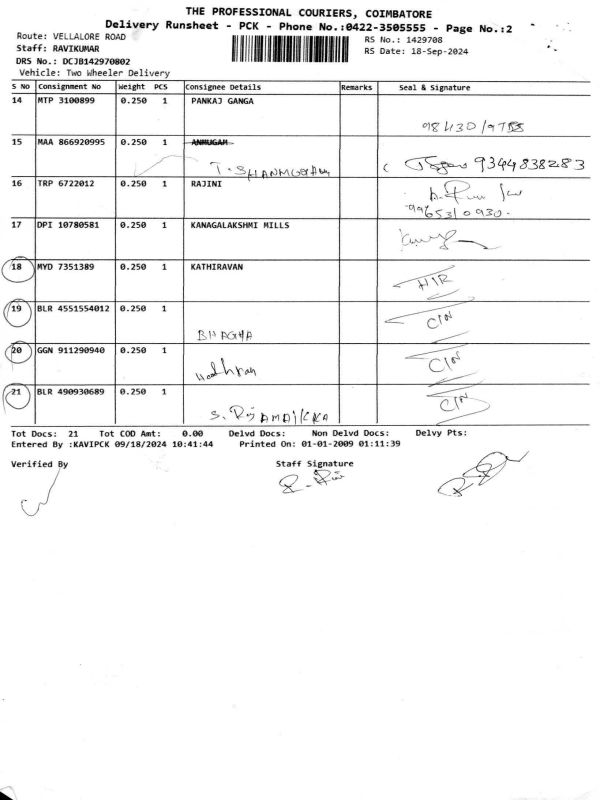 THE PROFESSIONAL COURIERS, COIMBATORE
Delivery Runsheet - PCK - Phone No.:0422-3505555 - Page No.:2
Route: VELLALORE ROAD
RS No.: 1429708
Staff: RAVIKUMAR
RS Date: 18-Sep-2024
DRS No.: DCJB142970802
Vehicle: Two Wheeler Delivery
S No Consignment No Weight PCS Consignee Details Remarks Seal & Signature
14 MTP 3100899 0.250 1 PANKAJ GANGA
15 MAA 866920995 0.250 1 ANMUGAM
T. SHANMUGAM 9344838283
16 TRP 6722012 0.250 1 RAJINI
9965310930.
17 DPI 10780581 0.250 1 KANAGALAKSHMI MILLS
18 MYD 7351389 0.250 1 KATHIRAVAN
HIR
19 BLR 4551554012 0.250 1
BHAGHA CIN
20 GGN 911290940 0.250 1
CIN
21 BLR 490930689 0.250 1
CIN
Tot Docs: 21 Tot COD Amt: 0.00 Delvd Docs: Non Delvd Docs: Delvy Pts:
Entered By :KAVIPCK 09/18/2024 10:41:44 Printed On: 01-01-2009 01:11:39
Verified By Staff Signature